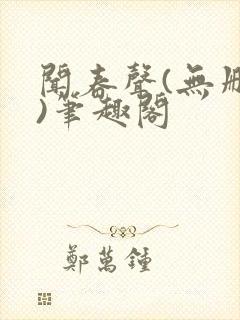 聞春聲(無刪
)筆趣閣
鄭萬鐘